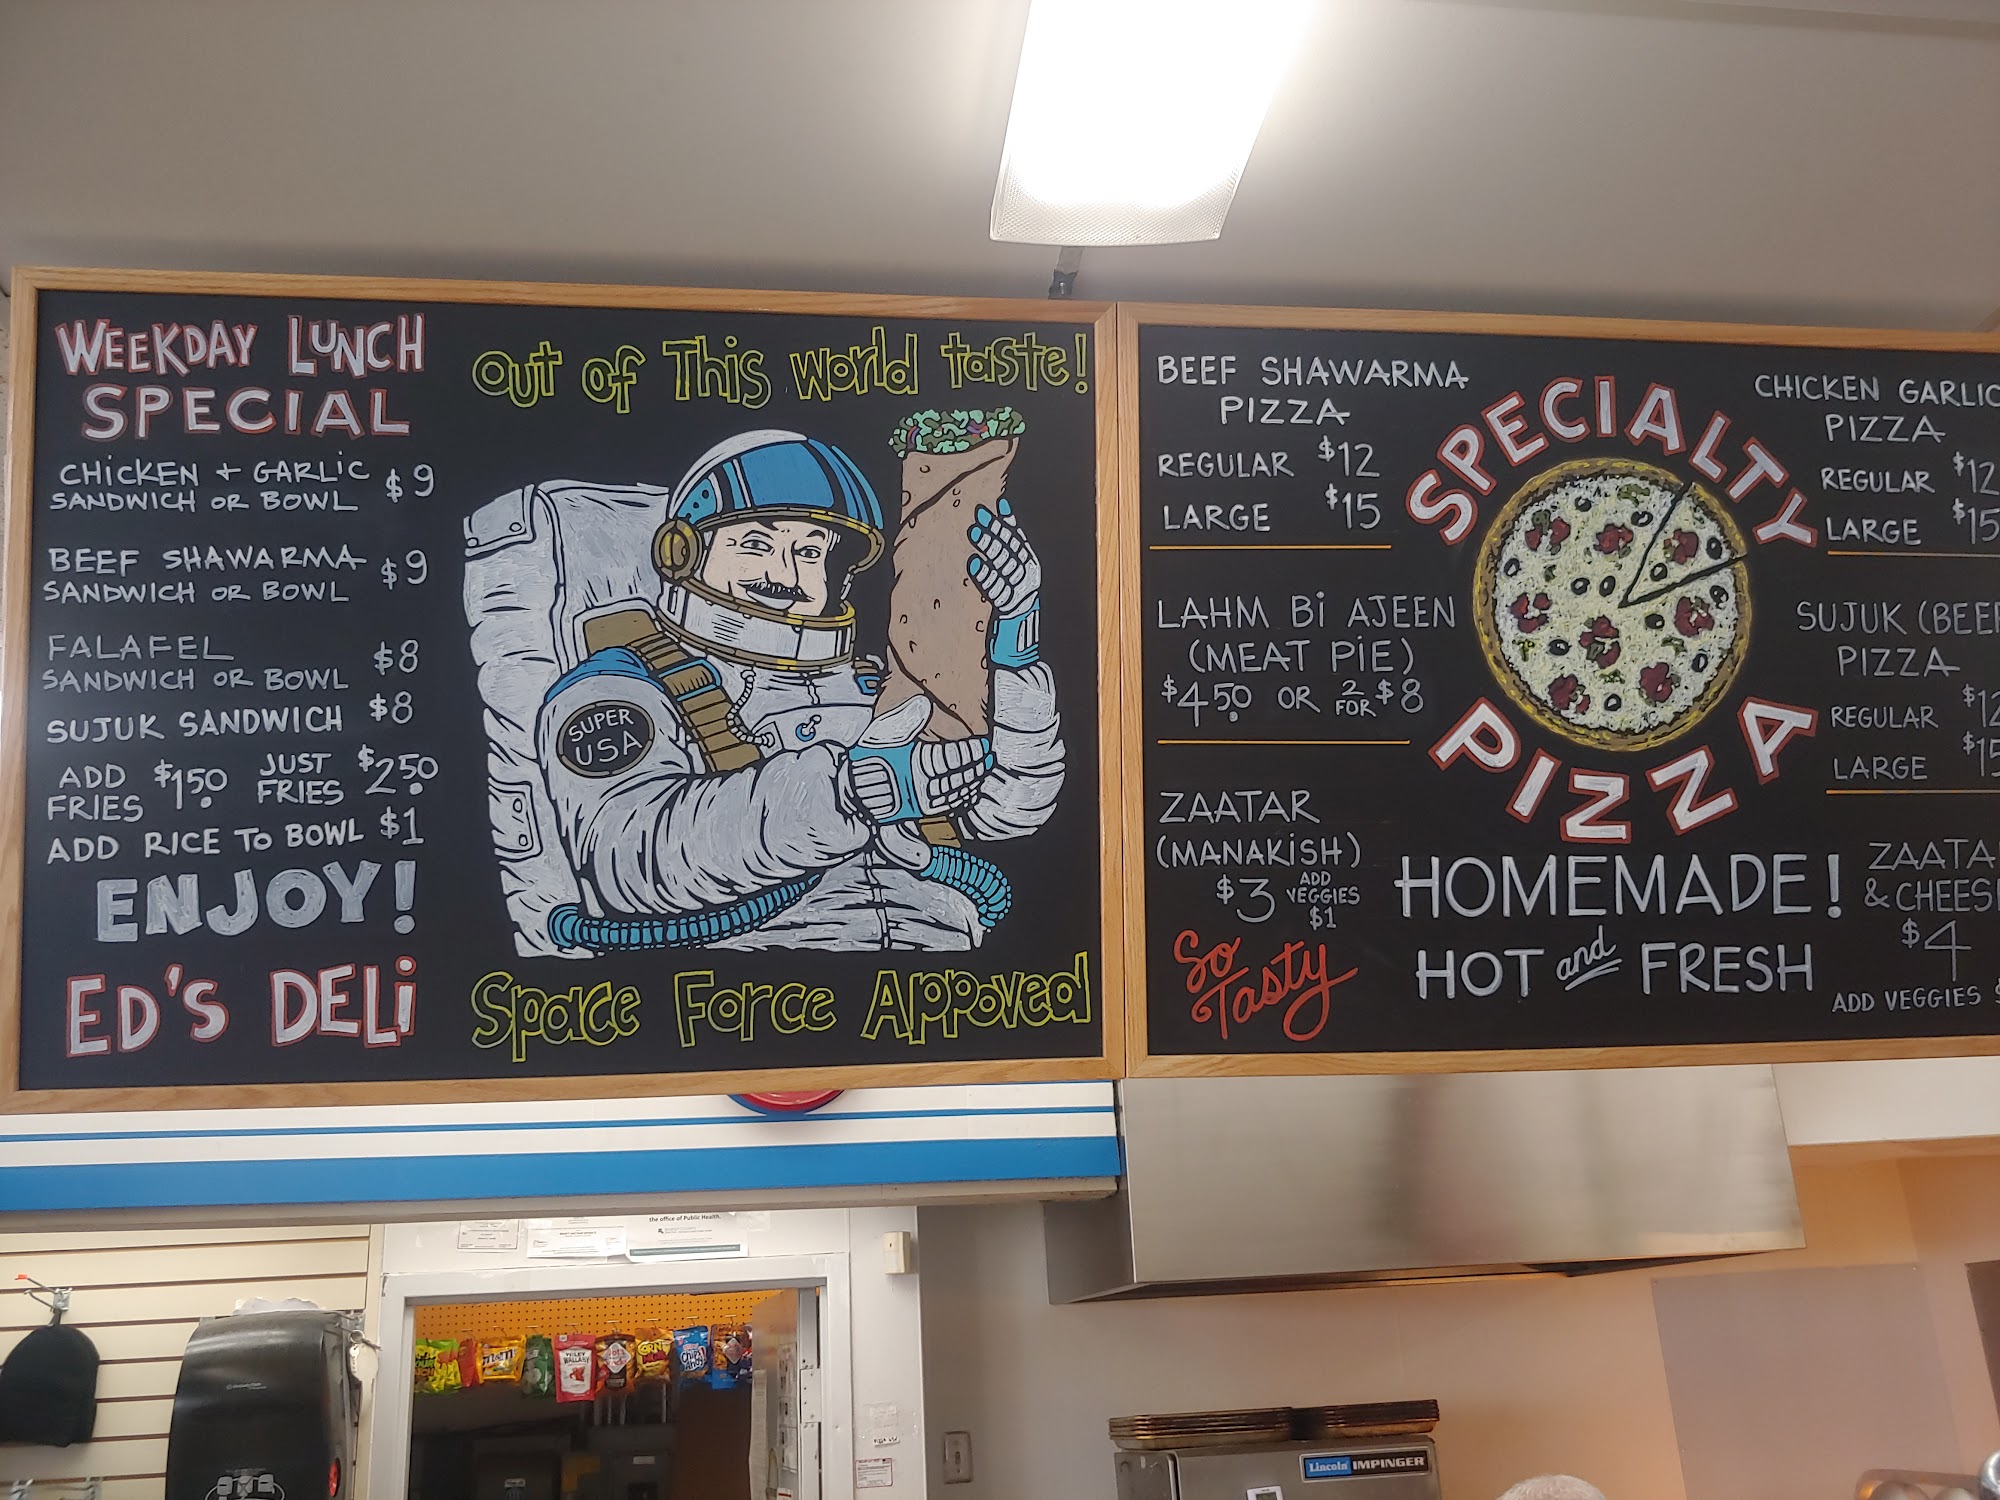 WEEKDAY LUNCH
SPECIAL
CHICKEN + GARLIC
SANDWICH OR BOWL $9
BEEF SHAWARMA
SANDWICH OR BOWL $9
FALAFEL
SANDWICH OR BOWL $8
SUJUK SANDWICH $8
ADD FRIES $1.50 JUST FRIES $2.50
ADD RICE TO BOWL $1
ENJOY!
ED'S DELI
Out of This world taste!
SUPER
USA
Space Force Appoved
BEEF SHAWARMA
PIZZA
REGULAR $12
LARGE $15
LAHM BI AJEEN
(MEAT PIE)
$4.50 OR 2 FOR $8
ZAATAR
(MANAKISH)
$3 ADD VEGGIES $1
So
Tasty
SPECIALTY
PIZZA
HOMEMADE!
HOT and FRESH
CHICKEN GARLIC
PIZZA
REGULAR $12
LARGE $15
SUJUK (BEEF
PIZZA
REGULAR $12
LARGE $15
ZAATA
& CHEES
$4
ADD VEGGIES $
the office of Public Health.
Lincoln IMPINGER